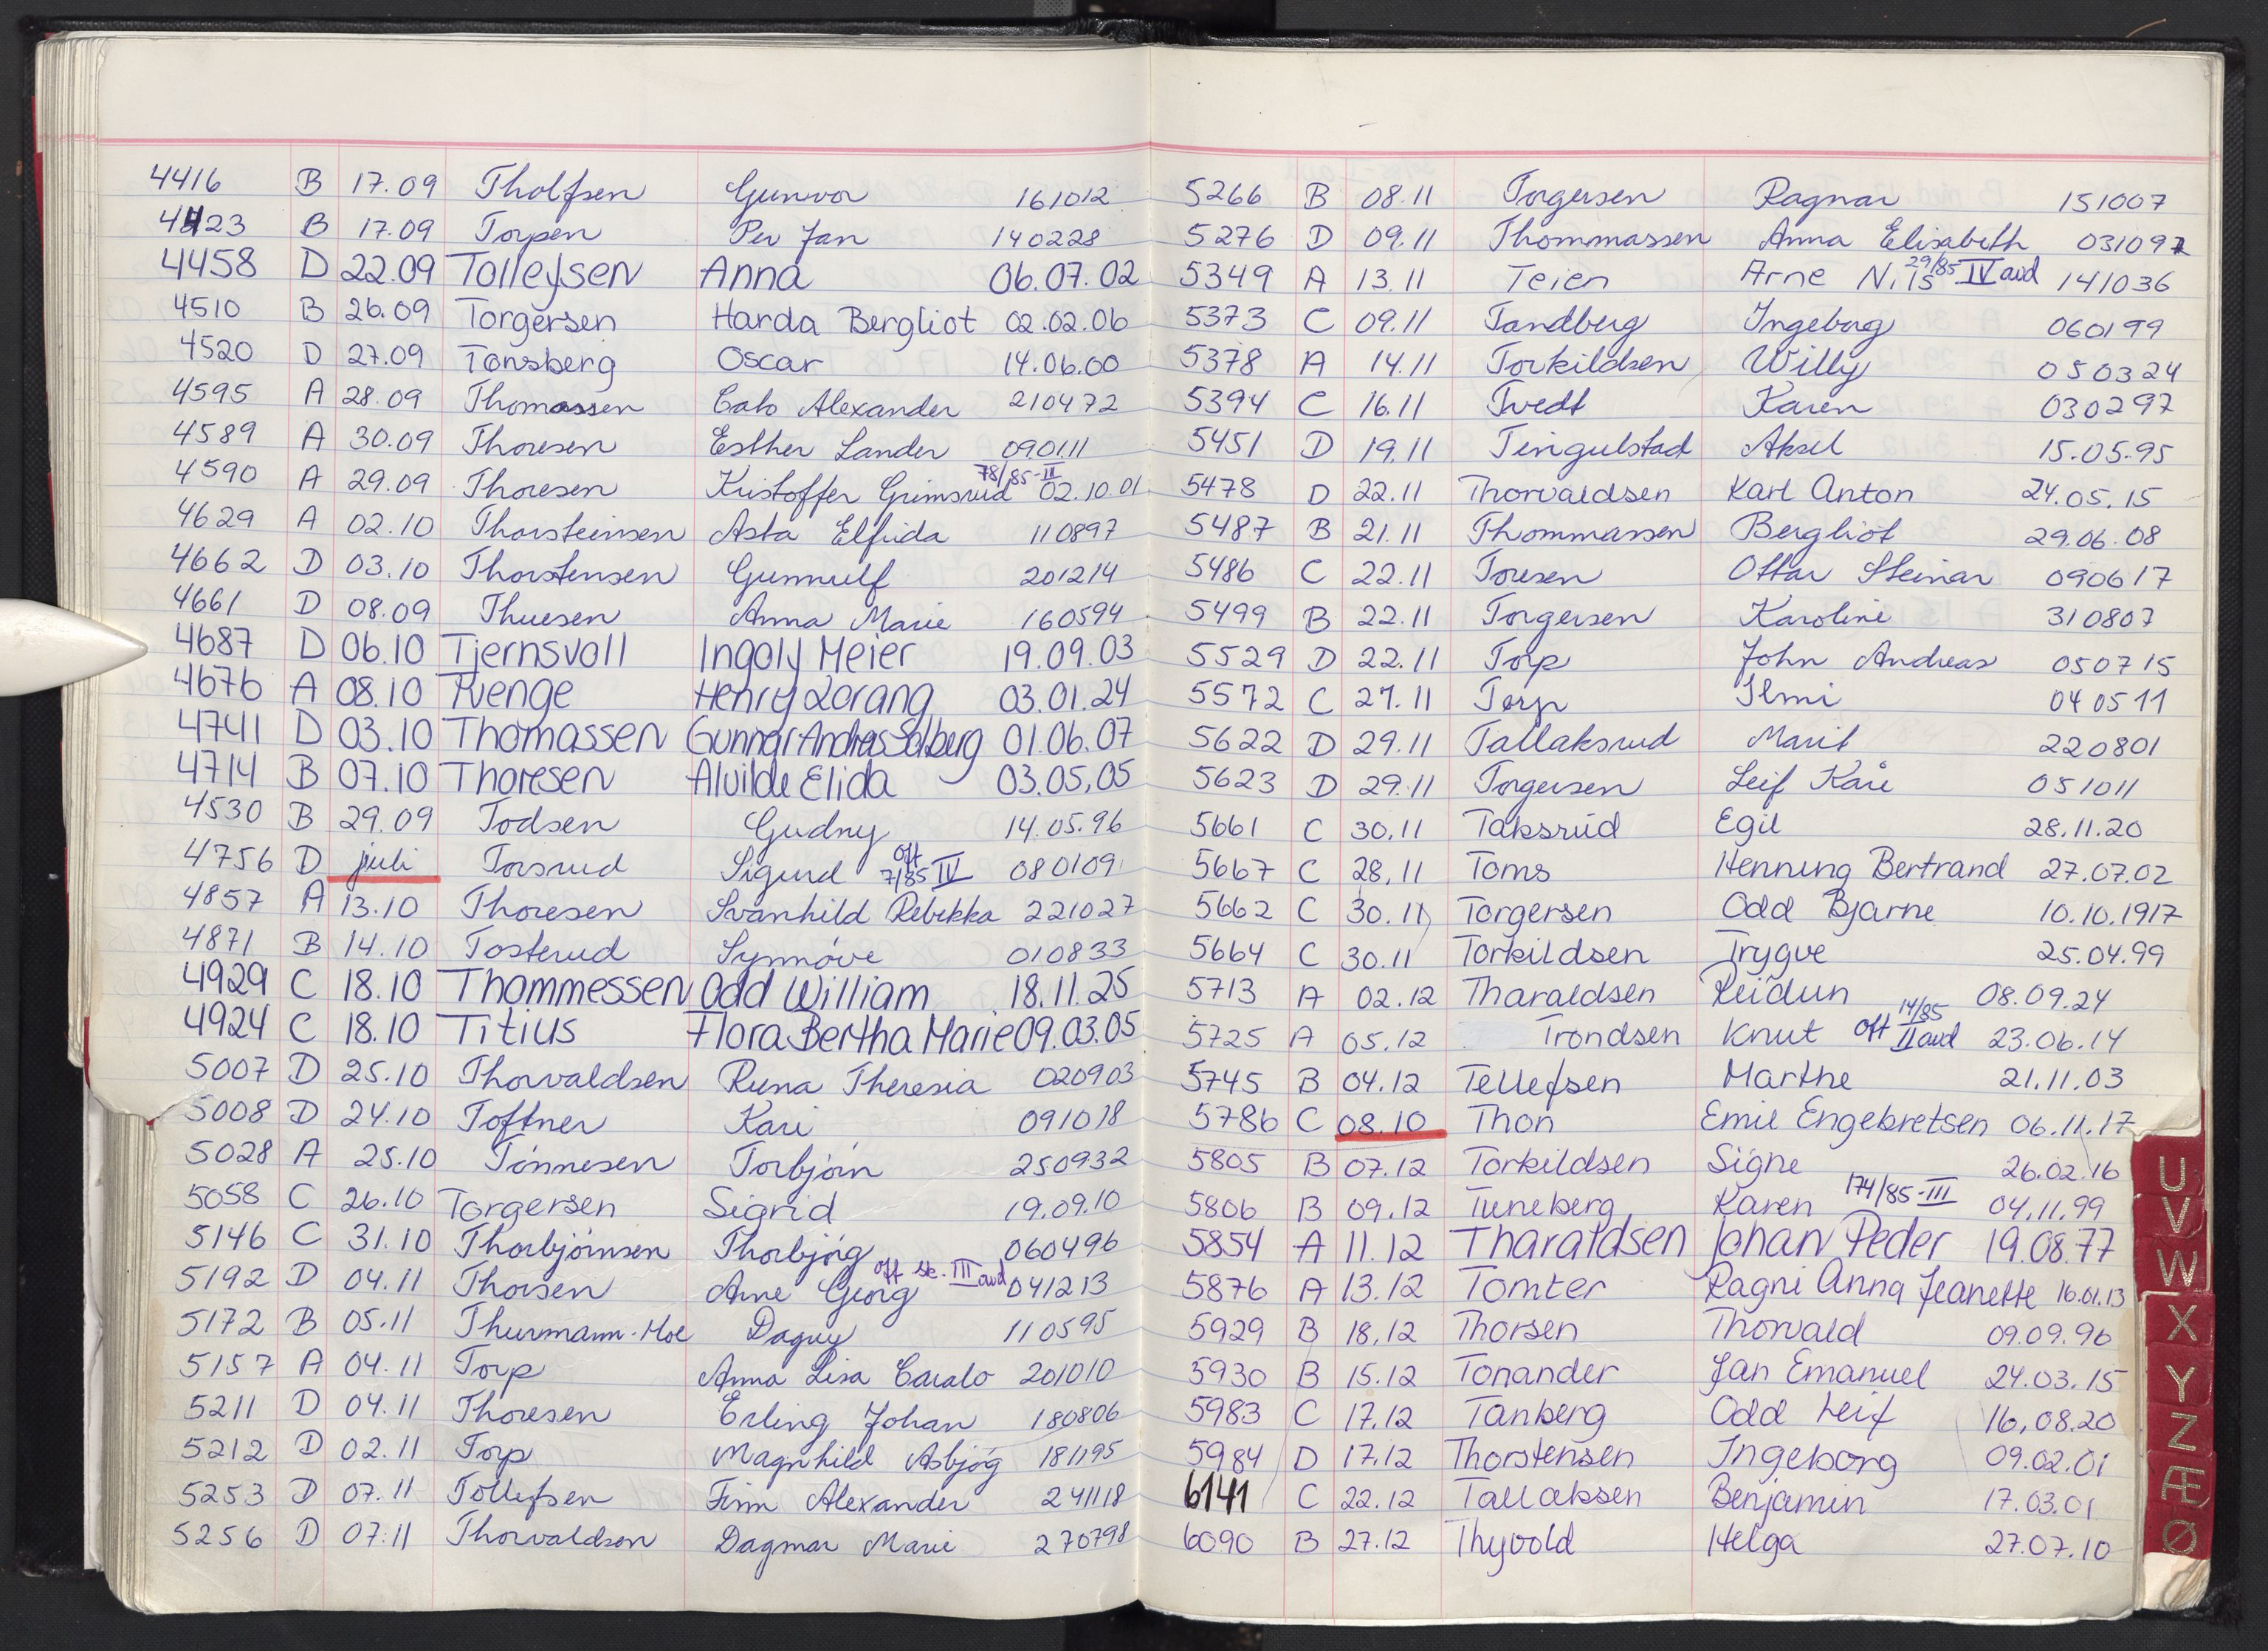 4416 B 17.09 Tholfsen Gunvor 161012
4423 B 17.09 Torpen Per Jan 140228
4458 D 22.09 Tollefsen Anna 06.07.02
4510 B 26.09 Torgersen Harda Bergliot 02.02.06
4520 D 27.09 Tønsberg Oscar 14.06.00
4595 A 28.09 Thomassen Cato Alexander 210472
4589 A 30.09 Thoresen Esther Lander 090111
78/85-II
4590 A 29.09 Thoresen Kristoffer Grimsrud 02.10.01
4629 A 02.10 Thorsteinsen Asta Elfrida 110897
4662 D 03.10 Thorstensen Gunnulf 201214
4661 D 08.09 Thuesen Anna Marie 160594
4687 D 06.10 Tjernsvoll Ingolf Meier 19.09.03
4676 A 08.10 Tvenge Henry Lorang 03.01.24
4741 D 03.10 Thomassen Gunnar Andreas Solberg 01.06.07
4714 B 07.10 Thoresen Alvilde Elida 03.05.05
4530 B 29.09 Todsen Gudny 14.05.96
4756 D juli Torsrud Sigurd off 7/85 IV 080109
4857 A 13.10 Thoresen Svanhild Rebekka 221027
4871 B 14.10 Tosterud Synnøve 010833
4929 C 18.10 Thommessen Odd William 18.11.25
4924 C 18.10 Titius Flora Bertha Marie 09.03.05
5007 D 25.10 Thorvaldsen Runa Theresia 020903
5008 D 24.10 Toftner Kari 091018
5028 A 25.10 Tønnesen Torbjørn 250932
5058 C 26.10 Torgersen Sigrid 19.09.10
5146 C 31.10 Thorbjørnsen Thorbjørg 060496
5192 D 04.11 Thorsen Arne Georg off sk. III avd 041213
5172 B 05.11 Thurmann-Moe Dagny 110595
5157 A 04.11 Torp Anna Lisa 201010
5211 D 04.11 Thoresen Erling Johan 180806
5212 D 02.11 Torp Magnhild Asbjørg 181195
5253 D 07.11 Tollefsen Finn Alexander 241118
5256 D 07.11 Thorvaldsen Dagmar Marie 270798
5266 B 08.11 Torgersen Ragnar 151007
5276 D 09.11 Thommassen Anna Elisabeth 031097
5349 A 13.11 Teien Arne Nils 29/85 IV avd 141036
5373 C 09.11 Tandberg Ingeborg 060199
5378 A 14.11 Torkildsen Willy 050324
5394 C 16.11 Tvedt Karen 030297
5451 D 19.11 Tingulstad Aksel 15.05.95
5478 D 22.11 Thorvaldsen Karl Anton 24.05.15
5487 B 21.11 Thommassen Bergliot 29.06.08
5486 C 22.11 Toresen Ottar Steinar 090617
5499 B 22.11 Torgersen Karoline 310807
5529 D 22.11 Torp John Andreas 050715
5572 C 27.11 Torp Ilmi 040511
5622 D 29.11 Tallaksrud Marit 220801
5623 D 29.11 Torgersen Leif Kåre 051011
5661 C 30.11 Taksrud Egil 28.11.20
5667 C 28.11 Toms Henning Bertrand 27.07.02
5662 C 30.11 Torgersen Odd Bjarne 10.10.1917
5664 C 30.11 Torkildsen Trygve 25.04.99
5713 A 02.12 Tharaldsen Reidun 08.09.24
5725 A 05.12 Trondsen Knut off 14/85 II avd 23.06.14
5745 B 04.12 Tellefsen Marthe 21.11.03
5786 C 08.10 Thon Emil Engebretsen 06.11.17
5805 B 07.12 Torkildsen Signe 26.02.16
5806 B 09.12 Tuneberg Karen 174/85-III 04.11.99
5854 A 11.12 Tharaldsen Johan Peder 19.08.77
5876 A 13.12 Tomter Ragni Anna Jeanette 16.01.13
5929 B 18.12 Thorsen Thorvald 09.09.96
5930 B 15.12 Tonander Jan Emanuel 24.03.15
5983 C 17.12 Tanberg Odd Leif 16.08.20
5984 D 17.12 Thorstensen Ingeborg 09.02.01
6141 C 22.12 Tallaksen Benjamin 17.03.01
6090 B 27.12 Thyvold Helga 27.07.10
U
V
W
X
Y
Z
Æ
Ø